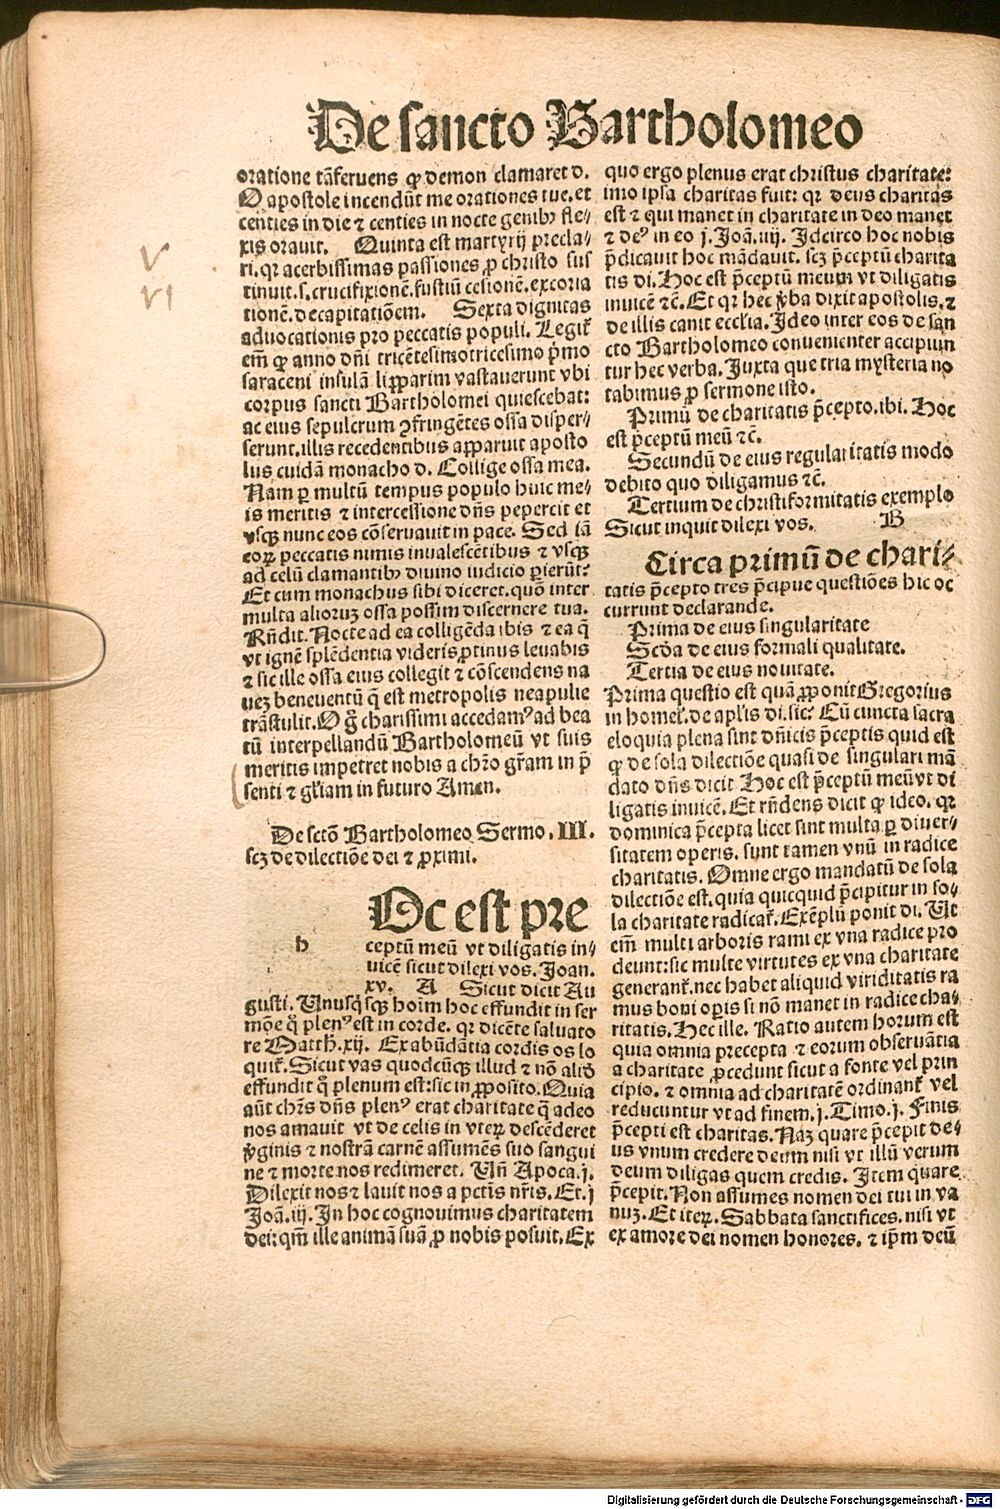 De sancto Bartholomeo
oratione tãferuens ꝙ demon clamaret d.
O apostole incendũt me orationes tue. et
centies in die ⁊ centies in nocte genibꝰ fle⸗
xis orauit. Quinta est martyrij precla⸗
ri. qꝛ acerbissimas passiones ꝓ christo sus
tinuit. s. crucifixionẽ. fustiũ cesionẽ. excoria
tionẽ. decapitatiõem. Sexta dignitas
aduocationis pro peccatis populi. Legit᷑
em̃ ꝙ anno dñi tricẽtesimotricesimo p̃mo
saraceni insulã lipparim vastauerunt vbi
corpus sancti Bartholomei quiescebat:
ac eius sepulcrum ꝯfringẽtes ossa disper⸗
serunt. illis recedentibus apparuit aposto
lus cuidã monacho d. Collige ossa mea.
Nam ꝑ multũ tempus populo huic me⸗
is meritis ⁊ intercessione dñs pepercit et
vsqꝫ nunc eos cõseruauit in pace. Sed iã
eoꝝ peccatis nimis inualescẽtibus ⁊ vsqꝫ
ad celũ clamantibꝰ diuino iudicio ꝑierũt:
Et cum monachus sibi diceret. quõ inter
multa alioruꝫ ossa possim discernere tua.
Rñdit. Nocte ad ea colligẽda ibis ⁊ ea q̃
vt ignẽ splẽdentia videris ꝓtinus leuabis
⁊ sic ille ossa eius collegit ⁊ cõscendens na
ueꝫ beneuentũ q̃ est metropolis neapulie
trãstulit. O g̃ charissimi accedamꝰ ad bea
tũ interpellandũ Bartholomeũ vt suis
meritis impetret nobis a chꝛo gr̃am in p̃
senti ⁊ gl̃iam in futuro Amen.
De sctõ Bartholomeo Sermo. III.
scꝫ de dilectiõe dei ⁊ ꝓximi.
h
Oc est pre
ceptũ meũ vt diligatis in⸗
uicẽ sicut dilexi vos. Joan.
xv. A Sicut dicit Au
gusti. Unusq̃sqꝫ hoĩm hoc effundit in ser
mõe q̃ plenꝰ est in corde. qꝛ dicẽte saluato
re Matth̃. xij. Ex abũdãtia cordis os lo
quit᷑. Sicut vas quodcũqꝫ illud ⁊ nõ aliď
effundit q̃ plenum est: sic in ꝓposito. Quia
aũt chr̃s dñs plenꝰ erat charitate q̃ adeo
nos amauit vt de celis in vteꝝ descẽderet
ṽginis ⁊ nostrã carnẽ assumẽs suo sangui
ne ⁊ morte nos redimeret. Uñ Apoca. j.
Dilexit nos ⁊ lauit nos a pctĩs nr̃is. Et. j
Joã. iij. In hoc cognouimus charitatem
dei: qm̃ ille animã suã ꝓ nobis posuit. Ex
quo ergo plenus erat christus charitate:
imo ipsa charitas fuit: qꝛ deus charitas
est ⁊ qui manet in charitate in deo manet
⁊ deꝰ in eo j. Joã. iiij. Idcirco hoc nobis
p̃dicauit hoc mãdauit. scꝫ p̃ceptũ charita
tis di. Hoc est p̃ceptũ meum vt diligatis
inuicẽ ⁊c̃. Et qꝛ hec ṽba dixit apostolis. ⁊
de illis canit ecclĩa. Ideo inter eos de san
cto Bartholomeo conuenienter accipiun
tur hec verba. Juxta que tria mysteria no
tabimus ꝓ sermone isto.
Primũ de charitatis p̃cepto. ibi. Hoc
est p̃ceptũ meũ ⁊c̃.
Secundũ de eius regularitatis modo
debito quo diligamus ⁊c̃.
Tertium de christiformitatis exemplo
Sicut inquit dilexi vos. B
Circa primũ de chari⸗
tatis p̃cepto tres p̃cipue questiões hic oc
currunt declarande.
Prima de eius singularitate
Scďa de eius formali qualitate.
Tertia de eius nouitate.
Prima questio est quã ꝓponit Gregorius
in homel̃. de apl̃is di. sic: Cũ cuncta sacra
eloquia plena sint dñicis p̃ceptis quid est
ꝙ de sola dilectiõe quasi de singulari mã
dato dñs dicit Hoc est p̃ceptũ meũ vt di
ligatis inuicẽ. Et rñdens dicit ꝙ ideo. qꝛ
dominica p̃cepta licet sint multa ꝑ diuer⸗
sitatem operis. sunt tamen vnũ in radice
charitatis. Omne ergo mandatũ de sola
dilectiõe est. quia quicquid p̃cipitur in so⸗
la charitate radicat᷑. Exẽplũ ponit di. Ut
em̃ multi arboris rami ex vna radice pro
deunt: sic multe virtutes ex vna charitate
generant᷑. nec habet aliquid viriditatis ra
mus boni oꝑis si nõ manet in radice cha⸗
ritatis. Hec ille. Ratio autem horum est
quia omnia precepta ⁊ eorum obseruãtia
a charitate ꝓcedunt sicut a fonte vel prin
cipio. ⁊ omnia ad charitatẽ ordinant᷑ vel
reducuntur vt ad finem. j. Timo. j. Finis
p̃cepti est charitas. Naꝫ quare p̃cepit de⸗
us vnum credere deum nisi vt illũ verum
deum diligas quem credis. Item quare
p̃cepit. Non assumes nomen dei tui in va
nuꝫ. Et iteꝝ. Sabbata sanctifices. nisi vt
ex amore dei nomen honores. ⁊ ip̃m deũ
V
VI
Digitalisierung gefördert durch die Deutsche Forschungsgemeinschaft - DFG